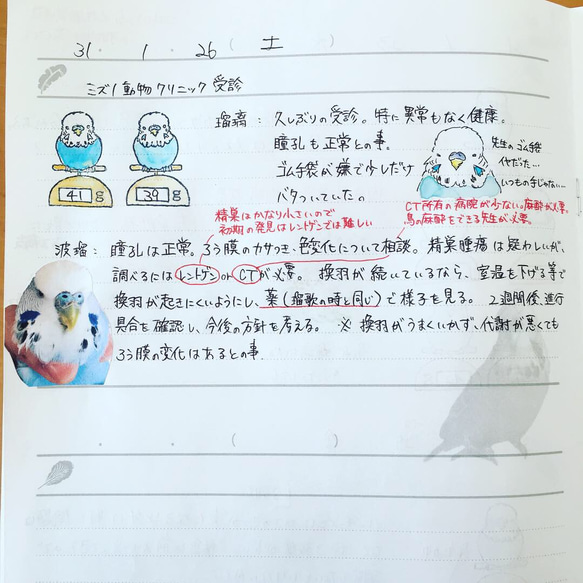 31 ・ 1 ・ 26 ( 土 )
ミズノ動物クリニック 受診
瑠璃： 久しぶりの受診。特に異常もなく健康。
瞳孔も正常との事。
ゴム手袋が嫌で少しだけ
バタついていた。
先生のゴム手袋
代だた…
いつもの手じゃない…
41 g
39 g
精巣はかなり小さいので
初期の発見はレントゲンでは難しい
CT所有の病院が少ない。麻酔が必要。
鳥の麻酔をできる先生が必要。
波瑠： 瞳孔は正常。ろう膜のカサつき、色変化について相談。精巣腫瘍は疑わしいが、
調べるにはレントゲンorCTが必要。 換羽が続いているなら、室温を下げる等で
換羽が起きにくいようにし、薬(瑠歌の時と同じ)で様子を見る。 2週間後、進行
具合を確認し、今後の方針を考える。 ※ 換羽がうまくいかず、代謝が悪くても
ろう膜の変化はあるとの事。
・ ・ ( )